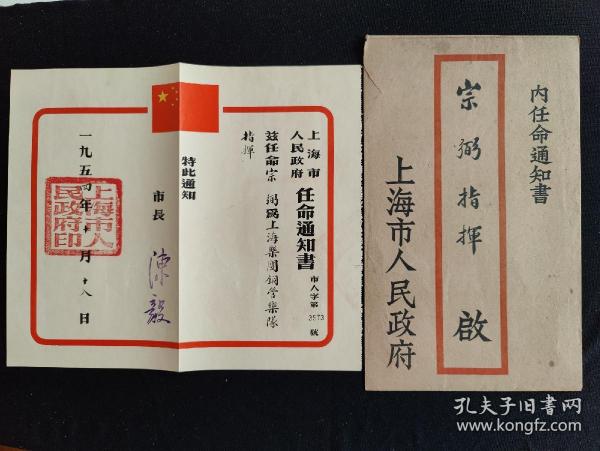 上海市
人民政府
任命通知書
市人字第3573號
兹任命宗弼為上海樂團銅管樂隊
指揮
特此通知
市長
陳毅
一九五四年十月十八日
上海市人
民政府印
内任命通知書
宗弼指揮 啟
上海市人民政府
孔夫子旧书网
www.kongfz.com